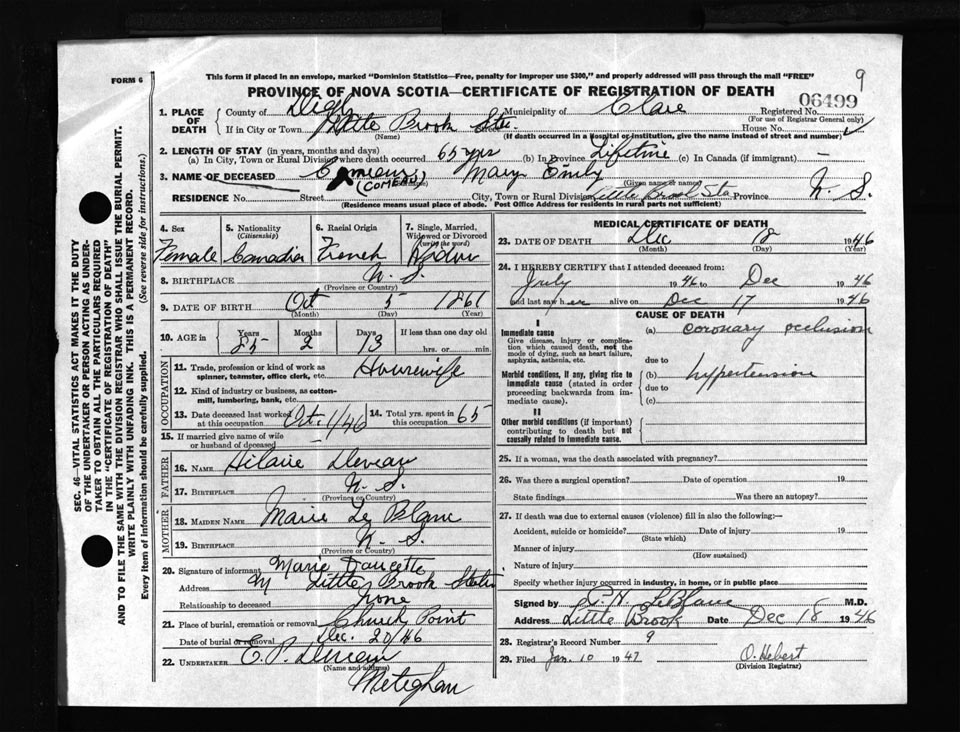 FORM 6
This form if placed in an envelope, marked "Dominion Statistics—Free, penalty for improper use $300," and properly addressed will pass through the mail "FREE"
9
PROVINCE OF NOVA SCOTIA—CERTIFICATE OF REGISTRATION OF DEATH
1. PLACE OF DEATH
County of Digby Municipality of Clare Registered No. 06499
(For use of Registrar General only)
If in City or Town Little Brook Sta. House No.
(Name) (If death occurred in a hospital or institution, give the name instead of street and number)
2. LENGTH OF STAY (in years, months and days)
(a) In City, Town or Rural Division where death occurred 65 yrs (b) In Province Lifetime (c) In Canada (if immigrant) —
3. NAME OF DECEASED Comeau (COMEAU) Mary Emily
(Given name or names)
RESIDENCE No. Street City, Town or Rural Division Little Brook Sta Province N. S.
(Residence means usual place of abode. Post Office Address for residents in rural parts not sufficient)
4. Sex Female
5. Nationality (Citizenship) Canadian
6. Racial Origin French
7. Single, Married, Widowed or Divorced (write the word) Widow
8. BIRTHPLACE N. S.
(Province or Country)
9. DATE OF BIRTH Oct 5 1861
(Month) (Day) (Year)
10. AGE in Years 85 Months 2 Days 13 If less than one day old
hrs. or min
OCCUPATION
11. Trade, profession or kind of work as spinner, teamster, office clerk, etc. Housewife
12. Kind of industry or business, as cotton-mill, lumbering, bank, etc.
13. Date deceased last worked at this occupation Oct. 1/46
14. Total yrs. spent in this occupation 65
15. If married give name of wife or husband of deceased —
FATHER
16. NAME Hilaire Deveau
17. BIRTHPLACE N. S.
(Province or Country)
MOTHER
18. MAIDEN NAME Marie Le Blanc
19. BIRTHPLACE N. S.
(Province or Country)
20. Signature of informant Marie Doucette
Address Little Brook Station
Relationship to deceased None
21. Place of burial, cremation or removal Church Point
Date of burial or removal Dec. 20/46
22. UNDERTAKER E. P. Deveau
(Name and address)
Meteghan
MEDICAL CERTIFICATE OF DEATH
23. DATE OF DEATH Dec 18 1946
(Month) (Day) (Year)
24. I HEREBY CERTIFY that I attended deceased from:
July 1946 to Dec 1946
and last saw her alive on Dec 17 1946
CAUSE OF DEATH
I
Immediate cause
Give disease, injury or complication which caused death, not the mode of dying, such as heart failure, asphyxia, asthenia, etc.
(a) coronary occlusion
due to
Morbid conditions, if any, giving rise to immediate cause (stated in order proceeding backwards from immediate cause).
(b) hypertension
due to
(c)
II
Other morbid conditions (if important) contributing to death but not causally related to immediate cause.
25. If a woman, was the death associated with pregnancy?
26. Was there a surgical operation? Date of operation 19
State findings Was there an autopsy?
27. If death was due to external causes (violence) fill in also the following:—
Accident, suicide or homicide? Date of injury 19
(State which)
Manner of injury
(How sustained)
Nature of injury
Specify whether injury occurred in industry, in home, or in public place
Signed by P. H. LeBlanc M.D.
Address Little Brook Date Dec 18 1946
28. Registrar's Record Number 9
29. Filed Jan. 10 1947 O. Hebert
(Division Registrar)
SEC. 46—VITAL STATISTICS ACT MAKES IT THE DUTY
OF THE UNDERTAKER OR PERSON ACTING AS UNDER-
TAKER TO OBTAIN ALL THE PARTICULARS REQUIRED
IN THE "CERTIFICATE OF REGISTRATION OF DEATH"
AND TO FILE THE SAME WITH THE DIVISION REGISTRAR WHO SHALL ISSUE THE BURIAL PERMIT.
WRITE PLAINLY WITH UNFADING INK. THIS IS A PERMANENT RECORD.
Every item of information should be carefully supplied. (See reverse side for instructions.)